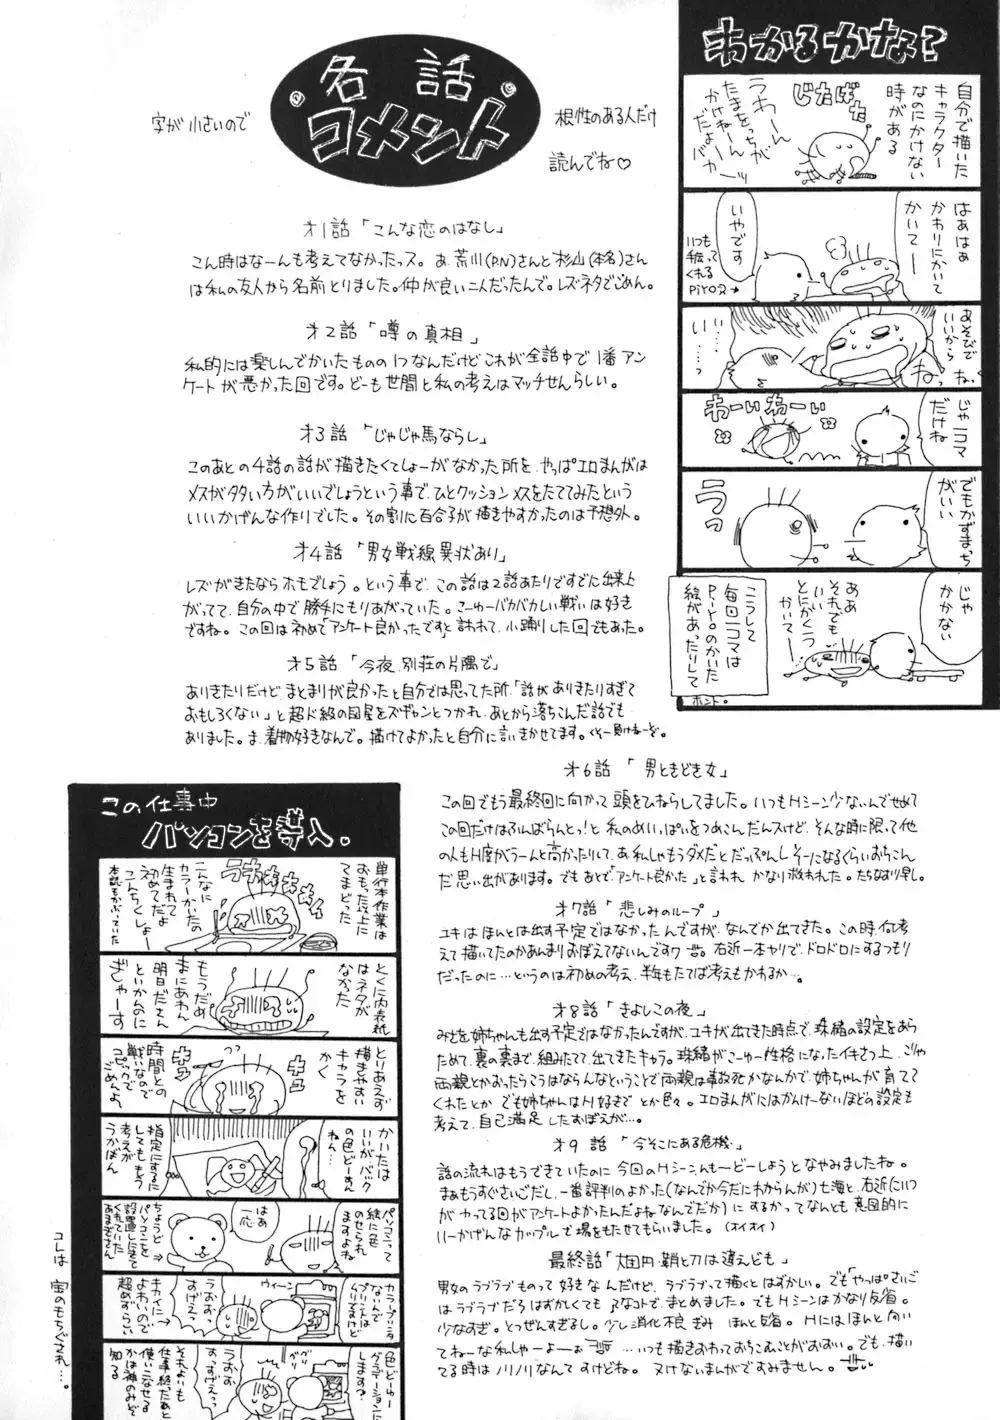 各話
コメント
字が小さいので
根性のある人だけ
読んでね♡
オ1話「こんな恋のはなし」
こん時はなーんも考えてなかったっス。あ、荒川(P.N)さんと杉山(本名)さん
は私の友人から名前とりました。仲が良い二人だったんで。レズネタでごめん。
オ2話「噂の真相」
私的には楽しんでかいたものの1つなんだけどこれが全話中で1番アン
ケートが悪かった回です。どーも世間と私の考えはマッチせんらしい。
オ3話「じゃじゃ馬ならし」
このあとの4話の話が描きたくてしょーがなかった所を、やっぱエロまんがは
メスがタタい方がいいでしょうという事で、ひとクッションメスをたててみたという
いいかげんな作りでした。その割に百合子が描きやすかったのは予想外。
オ4話「男女戦線異状あり」
レズがきたならホモでしょう。という事で、この話は2話あたりですでに出来上
がってて、自分の中で勝手にもりあがっていた。こーゆーバカバカしい戦いは好き
ですね。この回は初めて「アンケート良かったです」と言われて、小踊りした回でもあった。
オ5話「今夜、別荘の片隅で」
ありきたりだけどまとまりが良かったと自分では思ってた所、「話がありきたりすぎて
おもしろくない」と超ド級の図星をズギャンとつかれ、あとから落ちこんだ話でも
ありました。ま、着物好きなんで。描けてよかったと自分に言いきかせてます。くそー負けねーぞ。
オ6話「男ときどき女」
この回でもう最終回に向かって頭をひねらしてました。いつもHシーン少ないんでせめて
この回だけはふんばらんとっ!と私のめいっぱいをつめこんだんスけど、そんな時に限って他
の人もH度がうーんと高かったりして、あ、私しゃもうダメだとだっぷんしそーになるぐらいおちこん
だ思い出があります。でもあとで「アンケート良かた」と言われ かなり救われた。たちなおり早し。
オ7話「悲しみのループ」
ユキはほんとは出す予定ではなかったんですが、なんでか出てきた。この時、何考
えて描いてたのかあんまりおぼえてないんですワ。右近一本ヤリで、ドロドロにするつもり
だったのに…というのは初めの考え、半年もたてば考えもかわるか…。
オ8話「きよしこの夜」
みさを姉ちゃんも出す予定ではなかったんですが、ユキが出てきた時点で、珠緒の設定をあら
ためて、裏の裏まで、組みたてて、出てきたキャラ。珠緒がこーゆー性格になったイキさつ上、こりゃ
両親とかおったらこうはならんなということで両親は事故死かなんかで、姉ちゃんが育てて
くれたとか でも姉ちゃんはH好きで とか色々。エロまんがにはかんけーないほどの設定も
考えて、自己満足したおぼえが…。
オ9話「今そこにある危機」
話の流れはもうできていたのに今回のHシーンんも〜どーしょうとなやみましたね。
まぁもうすぐさいごだし、一番評判のよかった(なんでか今だにわからんが)七海と、右近(こいつ
がヤってる回がアンケートよかったんだよねなんでだか)にするかってなんとも意図的に
いーかげんなカップルで場をもたせてもらいました。(オイオイ)
最終話「大団円・鞘と刀は違えども」
男女のラブラブものって好きなんだけど、ラブラブって描くとはずかしい。でも「やっぱさいご
はラブラブだろはずかしくても」アなコトで、まとめました。でもHシーンはかなり反省。
少なすぎ。とつぜんすぎるし。少し消化不良ぎみ ほんと反省。Hにはほんと向い
てねーな私しゃーよーぉ …いつも描きおわっておちこむことがおおい。でも、描い
てる時はノリノリなんですけどね。ヌけないまんがですみません。
わかるかな?
自分で描いた
キャラクター
なのにかけない
時がある
じたばた
うわーん
たまをっちが
かけねーん
だよー
バーカーッ
はぁはぁ
かわりにかいて
かいてー
いやです
いつも
手伝って
くれる
PiYOス→
あそびで
いいから
ねっ ね、
い……
…っ
じゃーコマ
だけね
わーいわーい
でもかずまっち
がいい
うっ
じゃ
かかない
ああ
それでも
いい
とにかくっ
かいてー
こうして
毎回一コマは
P・i・Y・O。のかいた
絵があったりして
ホント。
この仕事中
パソコンを導入。
単行本作業は
おもった以上に
てまどった
こんなに
カラーかいたの
生まれて
初めてだよ
こんちくしょー
本誌もかぶっていた
とくに内表紙
はネタが
なかった
もうだめ
まにあわん
明日ださん
といかんのに
ぎゃーす
とりあえず
描きやすい
キャラを
時間との
戦いなので
コピックで
ごめんよ
かいたは
いいがバック
の色どーすん
ねん…
指定にするに
してももう
考えが
うかばん
パソコンって
絵に色
のせられ
ますよね
はぁ
一応
ちょうど⇒
パソコンを
設置しにきて
くれていた
あまぎさん
ウィーン
うおおっ
すげえっ
キカイに→
よわいので
超めずらしい
色どーゆー
グラデーションに
します?
うおお
おっすげえっ
それよりも
仕事終ったあと
使いこなせる
かは神のみぞ
知る
コレは宝のもちぐされ…。